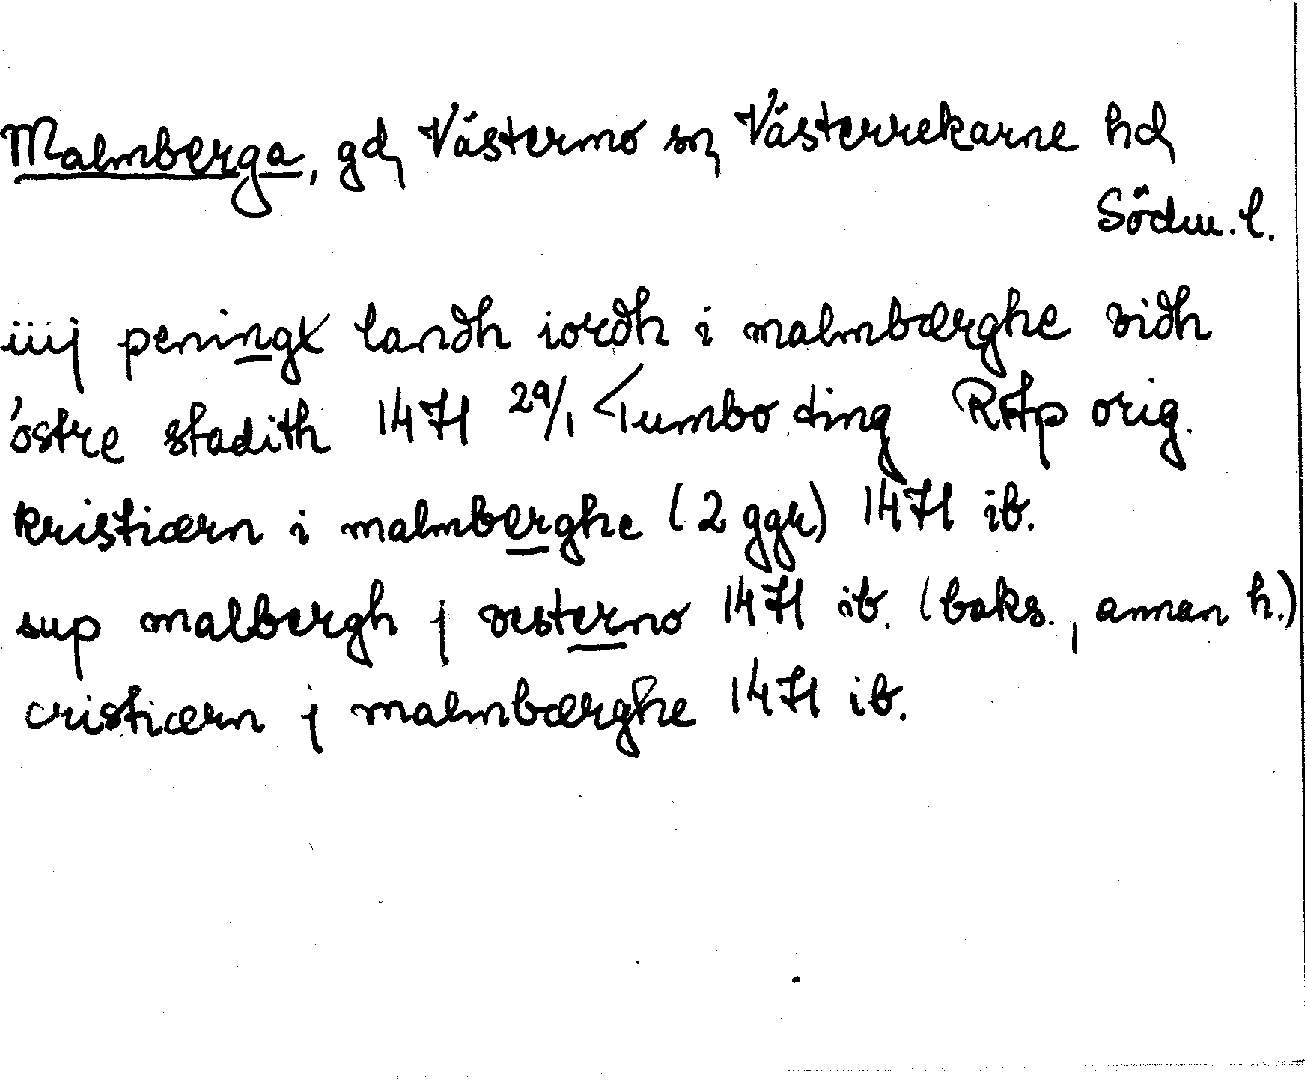 Malmberga, gd, Västermo sn, Västerrekarne hd,
Södm. l.
iiij peningx landh iordh i malmbærghe vidh
östre stadith 1471 29/1 Tumbo ting RAp orig.
kristiærn i malmberghe (2 ggr) 1471 ib.
sup malbergh j vesterno 1471 ib. (baks., annan h.)
cristiærn j malmbærghe 1471 ib.